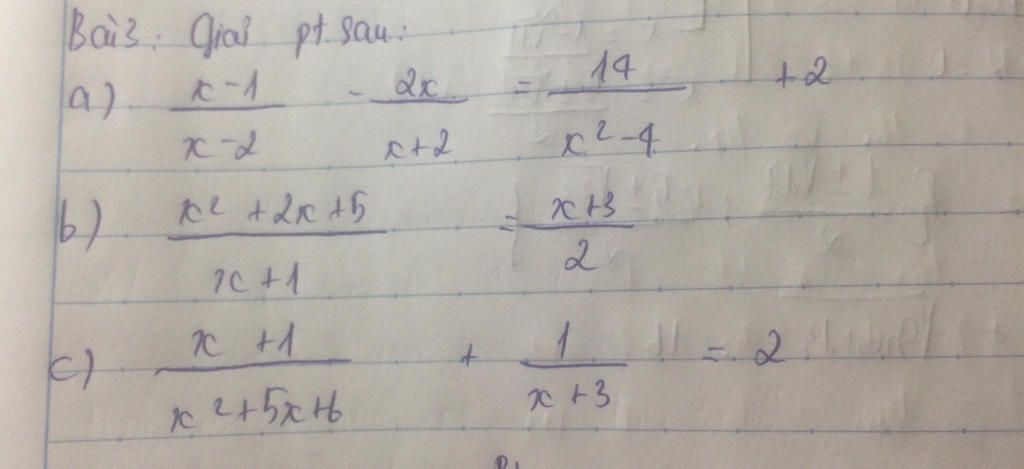 Bài 3: Giải pt sau:
a) \frac{x-1}{x-2} - \frac{2x}{x+2} = \frac{14}{x^2-4} + 2
b) \frac{x^2+2x+5}{x+1} = \frac{x+3}{2}
c) \frac{x+1}{x^2+5x+6} + \frac{1}{x+3} = 2